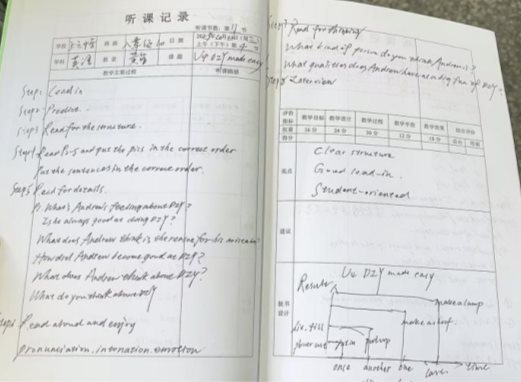 听课记录
听课节数：第11节
学校
姓名
日期
上午（下午）第
学科 英语
班级
课题 U4 DIY made easy
教学主要过程
听课随感
Step1 Lead in
Step2 Predict.
Step3 Read for the structure.
Step4 Read P2-5 and put the pics in the correct order
Put the sentences in the correct order.
Step5 Read for details.
What's Andrew's feeling about DIY?
Is he always good at doing DIY?
What does Andrew think is the reason for his
How did Andrew become good at DIY?
What does Andrew think about DIY?
What do you think about DIY
Step6 Read aloud and enjoy
pronunciation. intonation. emotion
Step7 Read for thinking
What kind of person do you think Andrew is?
What qualities does Andrew have as a big fan of DIY.
Step8 Interview
评价指标 教学目标 教学设计 教学过程 教学手段 教学效果 综合评价
权重
得分
亮点
Clear structure
Good lead-in.
Student-oriented
建议
板书设计
U4 DIY made easy
Results
make a lamp
make a shelf
fix
put up
once another one later time